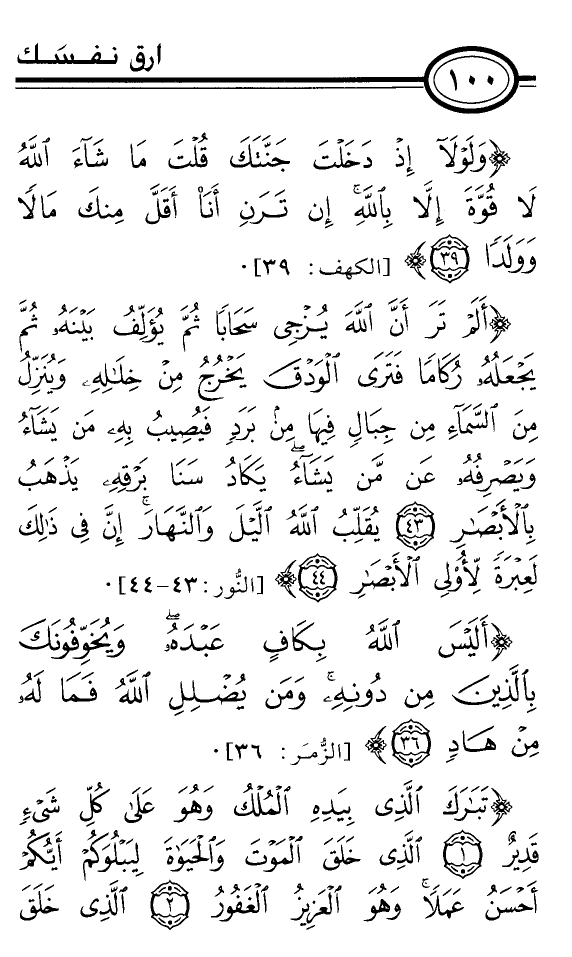 ارق نفسك
١٠٠
﴿وَلَوْلَآ إِذْ دَخَلْتَ جَنَّتَكَ قُلْتَ مَا شَآءَ ٱللَّهُ
لَا قُوَّةَ إِلَّا بِٱللَّهِۚ إِن تَرَنِ أَنَا۠ أَقَلَّ مِنكَ مَالًا
وَوَلَدًا ٣٩﴾ [الكهف: ٣٩].
﴿أَلَمْ تَرَ أَنَّ ٱللَّهَ يُزْجِى سَحَابًا ثُمَّ يُؤَلِّفُ بَيْنَهُۥ ثُمَّ
يَجْعَلُهُۥ رُكَامًا فَتَرَى ٱلْوَدْقَ يَخْرُجُ مِنْ خِلَٰلِهِۦ وَيُنَزِّلُ
مِنَ ٱلسَّمَآءِ مِن جِبَالٍ فِيهَا مِنۢ بَرَدٍ فَيُصِيبُ بِهِۦ مَن يَشَآءُ
وَيَصْرِفُهُۥ عَن مَّن يَشَآءُۖ يَكَادُ سَنَا بَرْقِهِۦ يَذْهَبُ
بِٱلْأَبْصَٰرِ ٤٣ يُقَلِّبُ ٱللَّهُ ٱلَّيْلَ وَٱلنَّهَارَۚ إِنَّ فِى ذَٰلِكَ
لَعِبْرَةً لِّأُو۟لِى ٱلْأَبْصَٰرِ ٤٤﴾ [النُّور: ٤٣-٤٤].
﴿أَلَيْسَ ٱللَّهُ بِكَافٍ عَبْدَهُۥۖ وَيُخَوِّفُونَكَ
بِٱلَّذِينَ مِن دُونِهِۦۚ وَمَن يُضْلِلِ ٱللَّهُ فَمَا لَهُۥ
مِنْ هَادٍ ٣٦﴾ [الزُّمَر: ٣٦].
﴿تَبَٰرَكَ ٱلَّذِى بِيَدِهِ ٱلْمُلْكُ وَهُوَ عَلَىٰ كُلِّ شَىْءٍ
قَدِيرٌ ١ ٱلَّذِى خَلَقَ ٱلْمَوْتَ وَٱلْحَيَوٰةَ لِيَبْلُوَكُمْ أَيُّكُمْ
أَحْسَنُ عَمَلًاۚ وَهُوَ ٱلْعَزِيزُ ٱلْغَفُورُ ٢ ٱلَّذِى خَلَقَ